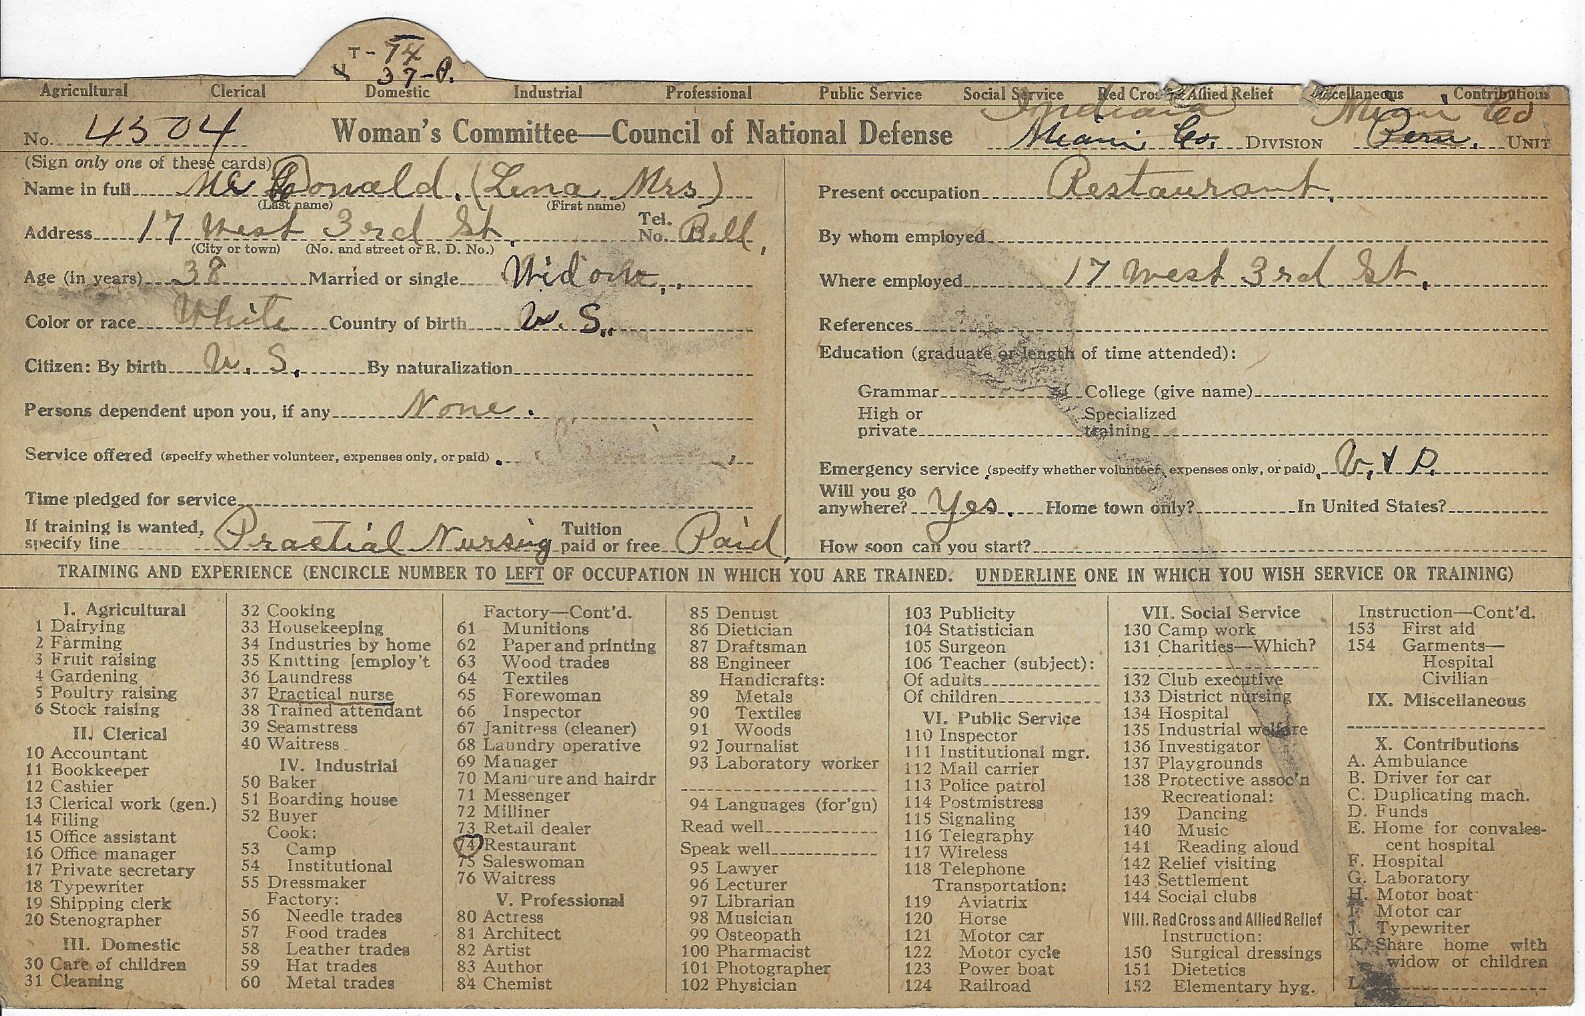 T- 74
37-P.
Agricultural Clerical Domestic Industrial Professional Public Service Social Service Red Cross Allied Relief Miscellaneous Contributions
Indiana Miami Co
No. 4504 Woman's Committee—Council of National Defense Miami Co. DIVISION Peru. UNIT
(Sign only one of these cards)
Name in full Mc Donald. (Lena Mrs)
(Last name) (First name)
Address 17 West 3rd St. Tel. No. Bell,
(City or town) (No. and street or R. D. No.)
Age (in years) 38 Married or single Widow,.
Color or race White Country of birth U. S.
Citizen: By birth U. S. By naturalization
Persons dependent upon you, if any None.
Service offered (specify whether volunteer, expenses only, or paid)
Time pledged for service
If training is wanted, specify line Practial Nursing Tuition paid or free Paid,
Present occupation Restaurant.
By whom employed
Where employed 17 West 3rd St.
References
Education (graduate or length of time attended):
Grammar College (give name)
High or private Specialized training
Emergency service (specify whether volunteer, expenses only, or paid) V. & P.
Will you go anywhere? Yes. Home town only? In United States?
How soon can you start?
TRAINING AND EXPERIENCE (ENCIRCLE NUMBER TO LEFT OF OCCUPATION IN WHICH YOU ARE TRAINED. UNDERLINE ONE IN WHICH YOU WISH SERVICE OR TRAINING)
I. Agricultural
1 Dairying
2 Farming
3 Fruit raising
4 Gardening
5 Poultry raising
6 Stock raising
II. Clerical
10 Accountant
11 Bookkeeper
12 Cashier
13 Clerical work (gen.)
14 Filing
15 Office assistant
16 Office manager
17 Private secretary
18 Typewriter
19 Shipping clerk
20 Stenographer
III. Domestic
30 Care of children
31 Cleaning
32 Cooking
33 Housekeeping
34 Industries by home
35 Knitting [employ't
36 Laundress
37 Practical nurse
38 Trained attendant
39 Seamstress
40 Waitress
IV. Industrial
50 Baker
51 Boarding house
52 Buyer
Cook:
53 Camp
54 Institutional
55 Dressmaker
Factory:
56 Needle trades
57 Food trades
58 Leather trades
59 Hat trades
60 Metal trades
Factory—Cont'd.
61 Munitions
62 Paper and printing
63 Wood trades
64 Textiles
65 Forewoman
66 Inspector
67 Janitress (cleaner)
68 Laundry operative
69 Manager
70 Manicure and hairdr
71 Messenger
72 Milliner
73 Retail dealer
74 Restaurant
75 Saleswoman
76 Waitress
V. Professional
80 Actress
81 Architect
82 Artist
83 Author
84 Chemist
85 Dentist
86 Dietician
87 Draftsman
88 Engineer
Handicrafts:
89 Metals
90 Textiles
91 Woods
92 Journalist
93 Laboratory worker
94 Languages (for'gn)
Read well
Speak well
95 Lawyer
96 Lecturer
97 Librarian
98 Musician
99 Osteopath
100 Pharmacist
101 Photographer
102 Physician
103 Publicity
104 Statistician
105 Surgeon
106 Teacher (subject):
Of adults
Of children
VI. Public Service
110 Inspector
111 Institutional mgr.
112 Mail carrier
113 Police patrol
114 Postmistress
115 Signaling
116 Telegraphy
117 Wireless
118 Telephone
Transportation:
119 Aviatrix
120 Horse
121 Motor car
122 Motor cycle
123 Power boat
124 Railroad
VII. Social Service
130 Camp work
131 Charities—Which?
132 Club executive
133 District nursing
134 Hospital
135 Industrial welfare
136 Investigator
137 Playgrounds
138 Protective assoc'n
Recreational:
139 Dancing
140 Music
141 Reading aloud
142 Relief visiting
143 Settlement
144 Social clubs
VIII. Red Cross and Allied Relief
Instruction:
150 Surgical dressings
151 Dietetics
152 Elementary hyg.
Instruction—Cont'd.
153 First aid
154 Garments—
Hospital
Civilian
IX. Miscellaneous
X. Contributions
A. Ambulance
B. Driver for car
C. Duplicating mach.
D. Funds
E. Home for convales-
cent hospital
F. Hospital
G. Laboratory
H. Motor boat
I. Motor car
J. Typewriter
K. Share home with
widow or children
L.